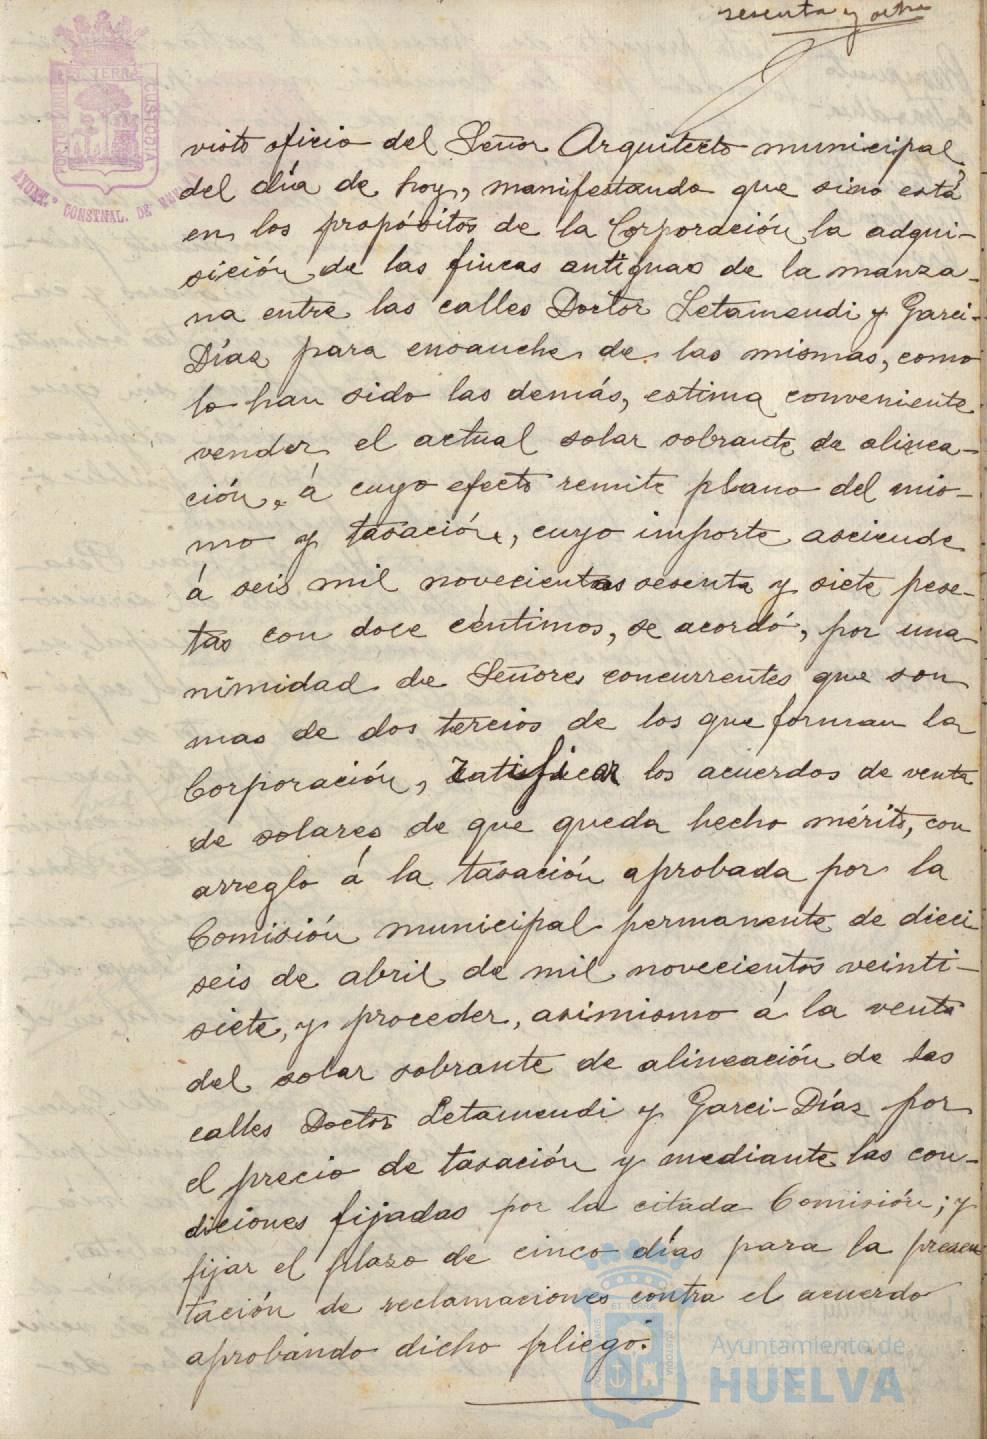 sesenta y ocho
PORTUS MARIS ET TERRÆ CUSTODIA
AYUNT.º CONSTNAL. DE HUELVA
visto oficio del Señor Arquitecto municipal,
del día de hoy, manifestando que sino está
en los propósitos de la Corporación la adqui-
sición de las fincas antiguas de la manza-
na entre las calles Doctor Letamendi y Garci-
Díaz para ensanche de las mismas, como
lo han sido las demás, estima conveniente
vender el actual solar sobrante de alinea-
ción, á cuyo efecto remite plano del mis-
mo y tasación, cuyo importe asciende
á seis mil novecientas sesenta y siete pese-
tas con doce céntimos, se acordó, por una-
nimidad de Señores concurrentes que son
mas de dos tercios de los que forman la
Corporación, ratificar los acuerdos de venta
de solares de que queda hecho mérito, con
arreglo á la tasación aprobada por la
Comisión municipal permanente de dieci
seis de abril de mil novecientos veinti-
siete, y proceder, asimismo á la venta
del solar sobrante de alineación de las
calles Doctor Letamendi y Garci-Díaz por
el precio de tasación y mediante las con-
diciones fijadas por la citada Comisión; y
fijar el plazo de cinco días para la presen
tación de reclamaciones contra el acuerdo
aprobando dicho pliego.
Ayuntamiento de
HUELVA